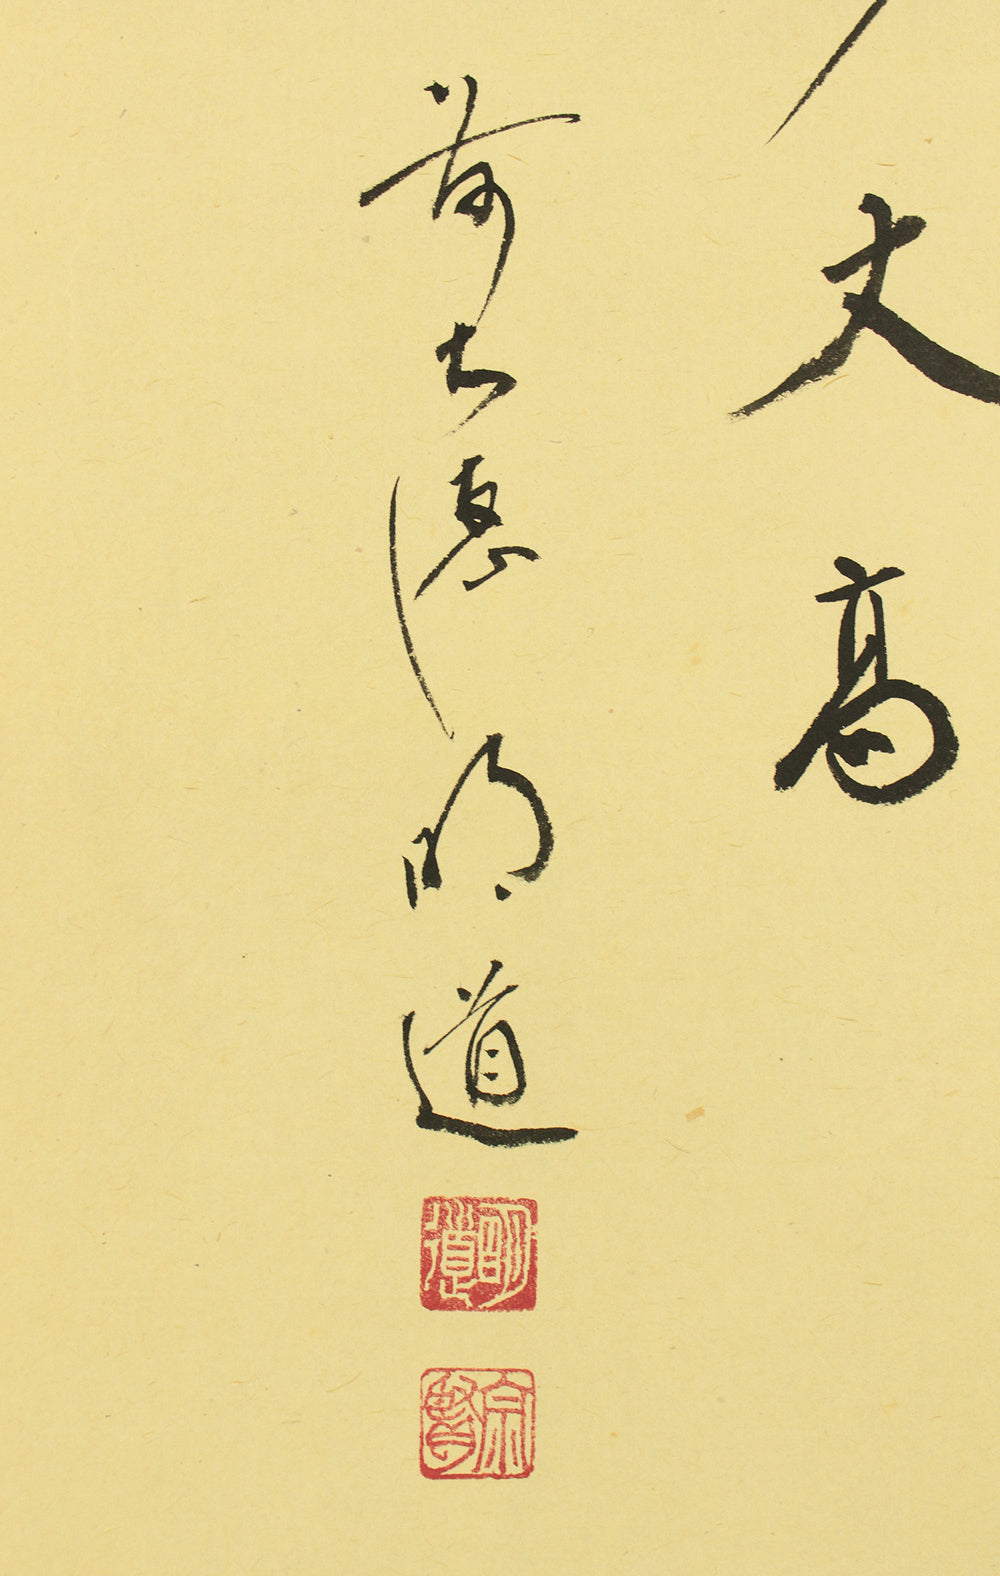 丈高
前大德明道
明道
宗